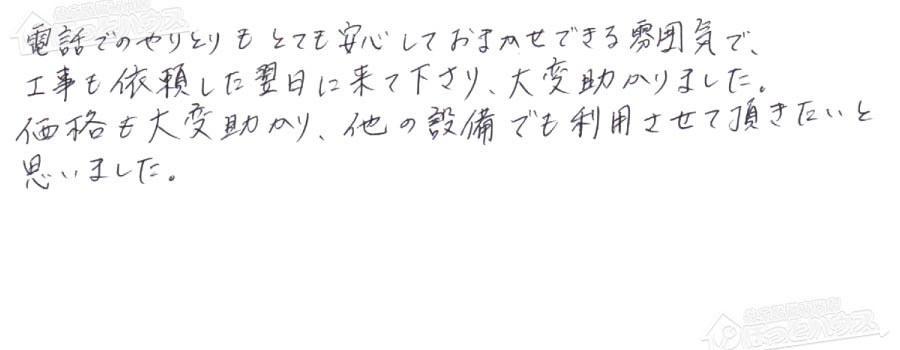 電話でのやりとりもとても安心しておまかせできる雰囲気で、
工事も依頼した翌日に来て下さり、大変助かりました。
価格も大変助かり、他の設備でも利用させて頂きたいと
思いました。
ほっとハウス